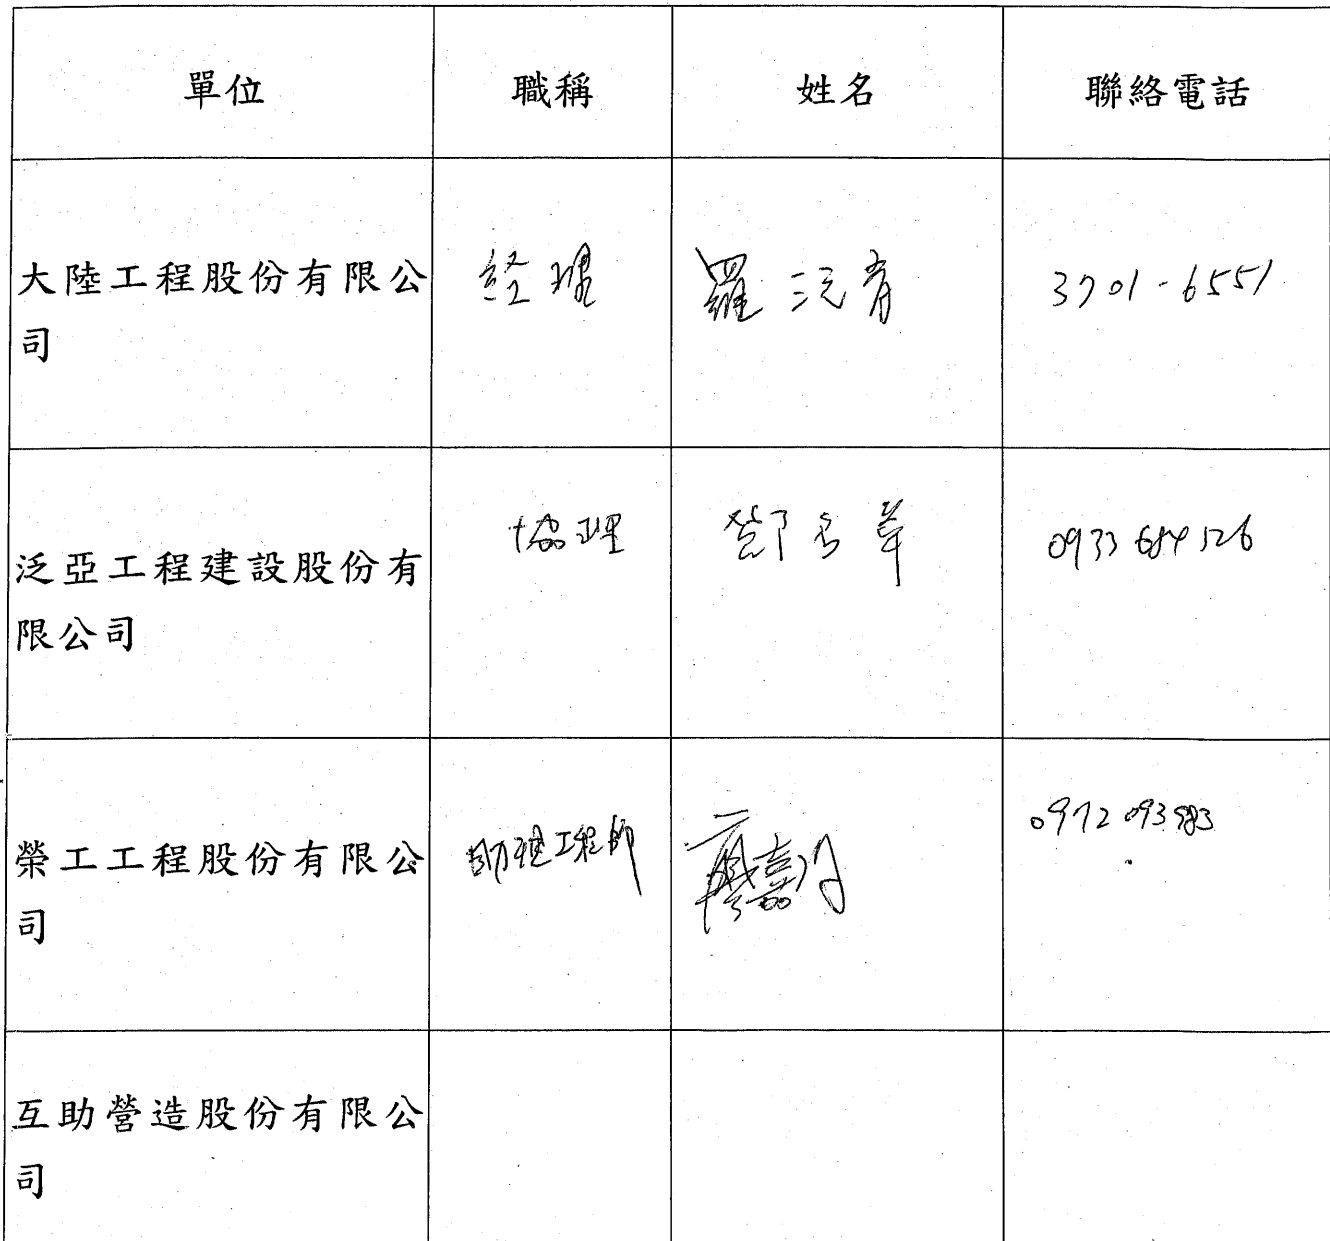 單位 職稱 姓名 聯絡電話
大陸工程股份有限公 經理 羅 3701-6551
司
泛亞工程建設股份有 協理 鄧 0933 684 526
限公司
榮工工程股份有限公 助理工程師 廖嘉 0972 093
司
互助營造股份有限公
司